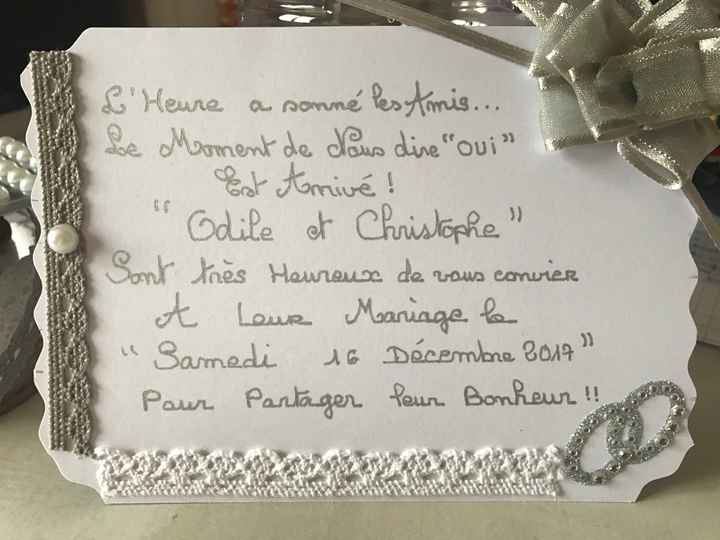 L'Heure a sonné les Amis...
Le Moment de Nous dire "OUi"
Est Arrivé !
"Odile et Christophe"
Sont très Heureux de vous convier
A Leur Mariage le
"Samedi 16 Décembre 2017"
Pour Partager leur Bonheur !!